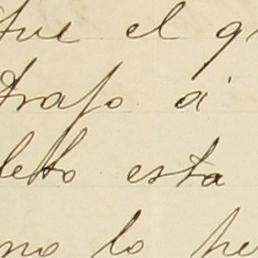 tue el q
trajo á
leto esta
no lo pe